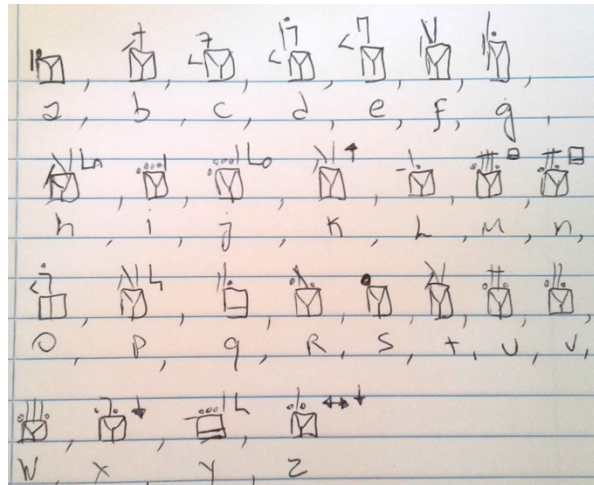 a, b, c, d, e, f, g,
h, i, j, K, L, M, n,
O, P, q, R, S, t, u, v,
W, X, Y, Z